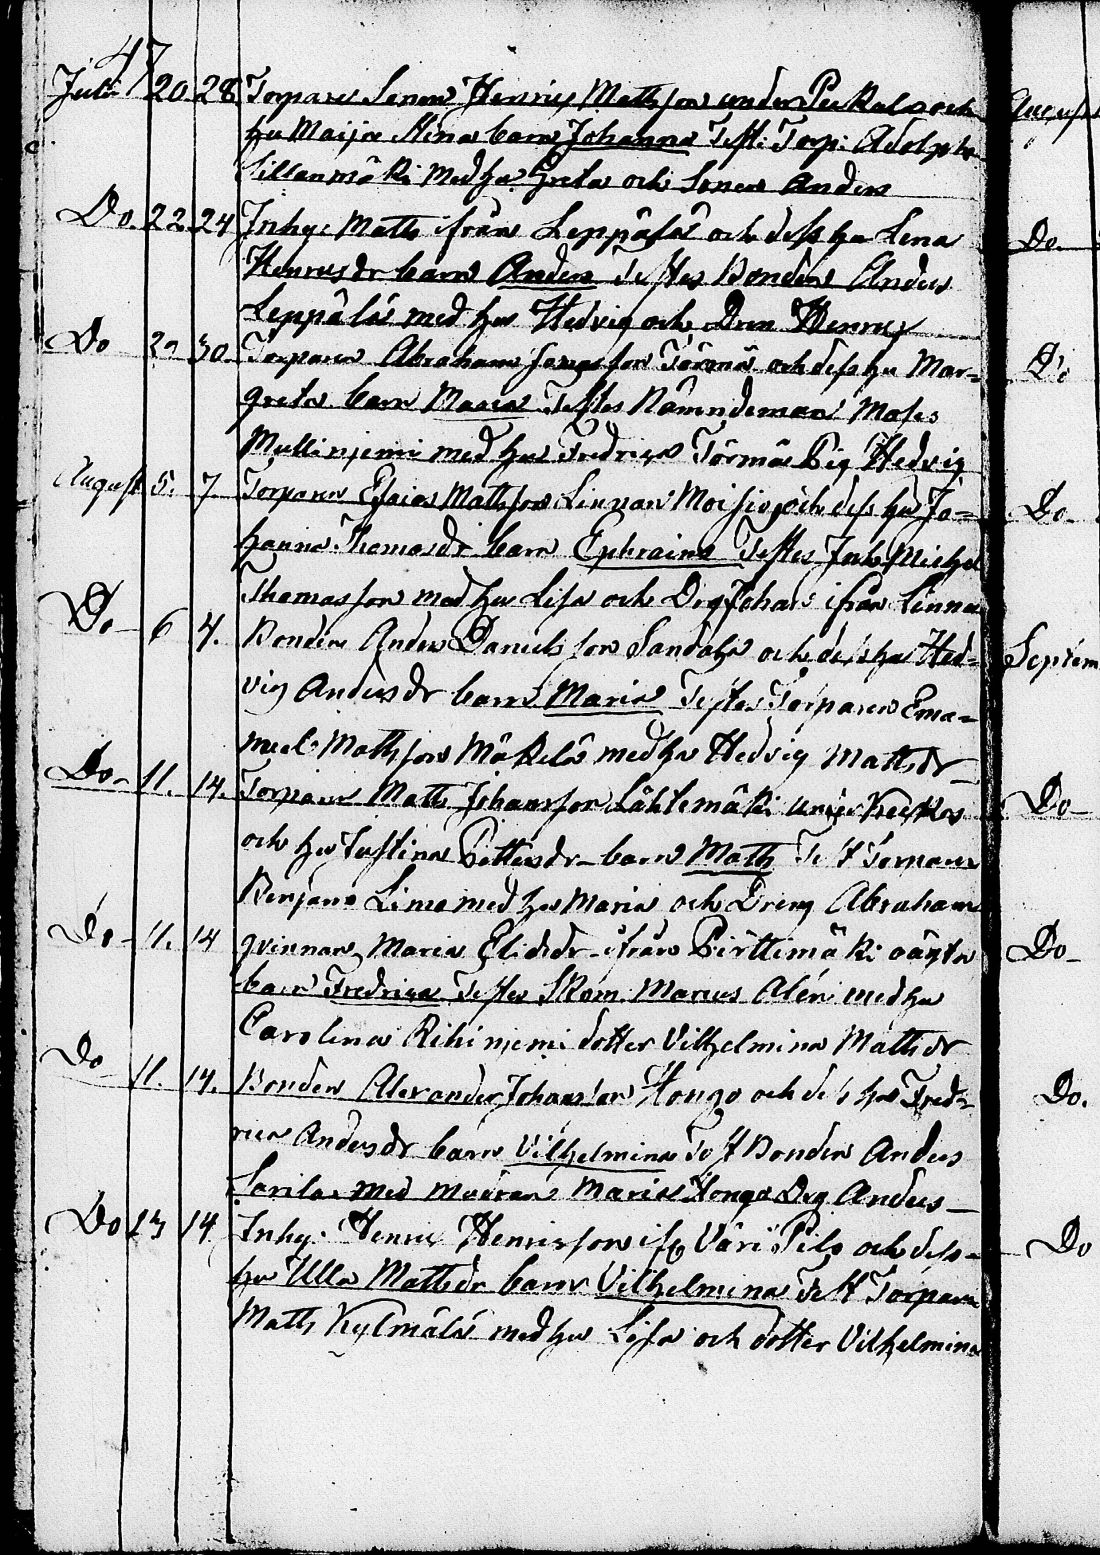 47
Juli 20 28 Torpare Sonen Henric Mathsson under Peckala och
hu Maija Stina barn Johanna Test: Torp: Adolph
Sillanmäki med hu Greta och Sonen Anders
Do. 22 24 Inhy: Matts ifrån Leppälä och dess hu Lena
Henricsdr barn Anders Testes Bonden Anders
Leppälä med hu Hedvig och Dren Henric
Do 30 Torparen Abraham Törmä och dess hu Mar=
greta barn Maria Testes Nämndeman Moses
Mullinjemi med hu Fredrica Törmä Pig Hedvig
August 5. 7. Torparen Esaias Mathsson Linnan Moisio och dess hu Jo=
hanna Thomasdr barn Ephraim Testes Inh Michel
Thomasson med hu Lisa och Dreg Johan ifrån Linna
Do 6 4. Bonden Anders Danielsson Sandahs och dess hu Hed=
vig Andersdr barn Maria Testes Torparen Ema=
nuel Mathsson Mäkelä med hu Hedvig Mattsdr
Do 11. 14. Torparen Matts Johansson Lähtemäki under Keckos
och hu Justina Pettersdr barn Matts Test Torparen
Benjam Limo med hu Maria och Dreng Abraham
Do 11. 14 qvinnan Maria Eliedr ifrån Pirttimäki oägta
barn Fredrica Testes Skom. Marcus Alén med hu
Carolina Rihinjemi dotter Vilhelmina Mattsdr
Do 11. 14. Bonden Alexander Johansson Hongo och dess hu Fred=
rica Andersdr barn Vilhelmina Test Bonden Anders
Sarila med modren Maria Hongo Dreg Anders
Do 13 14 Inhy: Henric Henricsson ifr Väri Pelo och dess
hu Ulla Mattsdr barn Vilhelmina Test Torparen
Matts Kylmälä med hu Lisa och dotter Vilhelmina
August
Do
Do
Do
Septem
Do
Do
Do.
Do